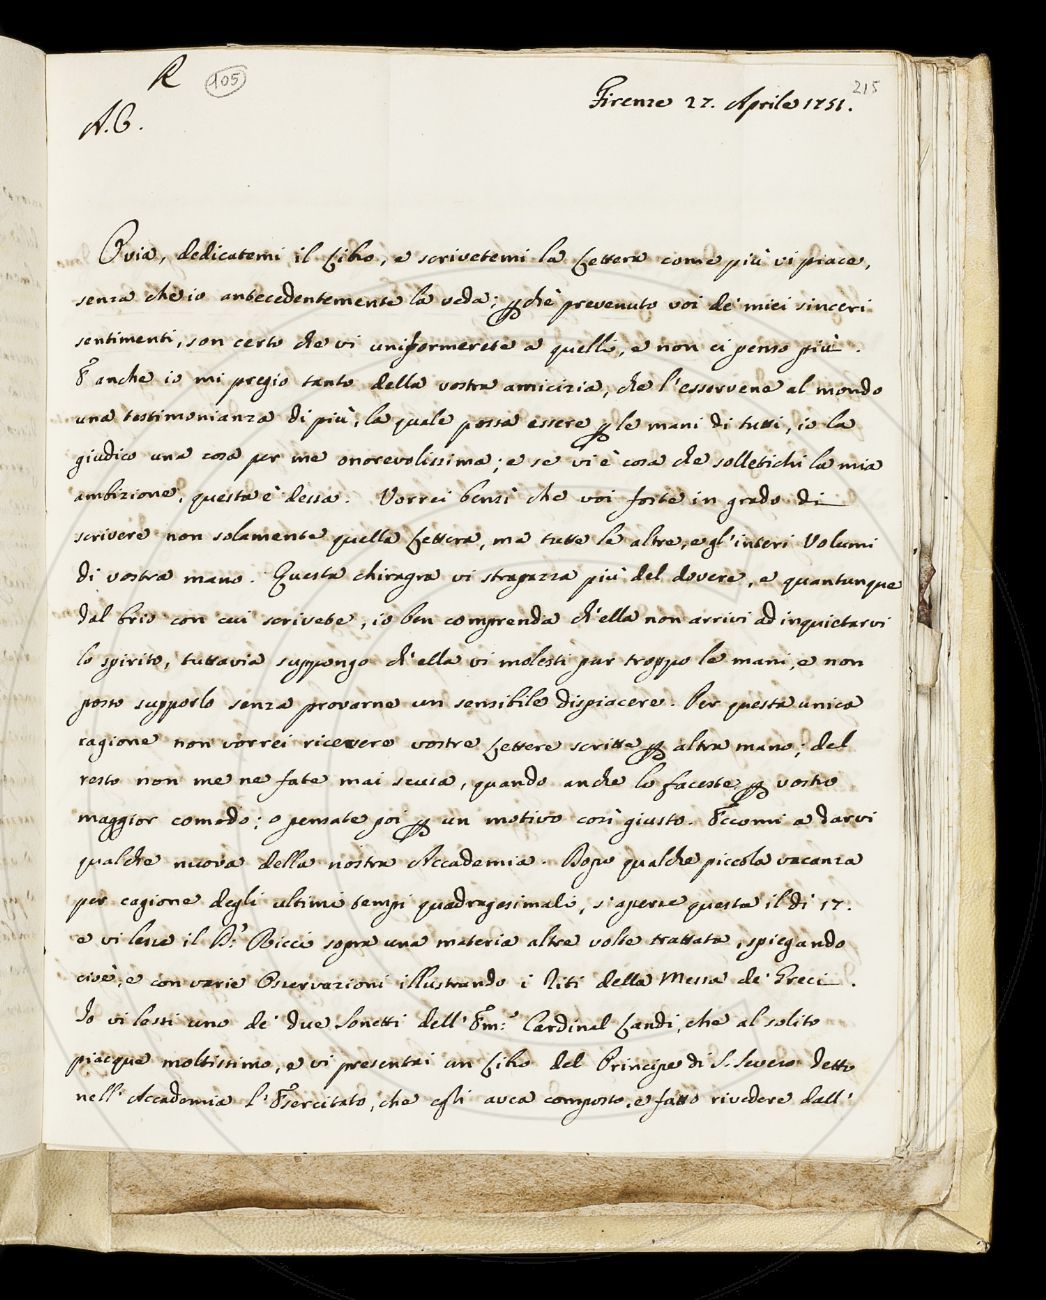 R 105
215
Firenze 27. Aprile 1751.
A. C.
Ovia, dedicatemi il Libro, e scrivetemi la Lettera come più vi piace,
senza che io antecedentemente la veda; p̱chè prevenuto voi de' miei sinceri
sentimenti, son certo che vi uniformerete a quelli, e non ci penso più.
E anche io mi pregio tanto della vostra amicizia, che l'esservene al mondo
una testimonianza di più, la quale possa essere p̱ le mani di tutti, io la
giudico una cosa per me onorevolissima; e se vi è cosa che solletichi la mia
ambizione, questa è dessa. Vorrei bensì che voi foste in grado di
scrivere non solamente quella Lettera, ma tutte le altre, e gl'interi Volumi
di vostra mano. Questa chiragra vi strapazza più del dovere, e quantunque
dal brio con cui scrivete, io ben comprenda ch'ella non arrivi ad inquietarvi
lo spirito, tuttavia suppongo ch'ella vi molesti pur troppo le mani, e non
posso supporlo senza provarne un sensibile dispiacere. Per questa unica
cagione non vorrei ricevere vostre Lettere scritte p̱ altra mano; del
resto non me ne fate mai scusa, quando anche lo faceste p̱ vostro
maggior comodo; o pensate poi p̱ un motivo così giusto. Eccomi a darvi
qualche nuova della nostra Accademia. Dopo qualche piccola vacanza
per cagione degli ultimi tempi quadragesimali, s'aperse questa il dì 17.
e vi lesse il P.ʳ Ricci sopra una materia altre volte trattata, spiegando
cioè, e con varie Osservazioni illustrando i Riti della Messa de' Greci.
Io vi lessi uno de' due Sonetti dell'Em:º Cardinal Landi, che al solito
piacque moltissimo, e vi presentai un Libro del Principe di S. Severo detto
nell'Accademia l'Esercitato, che egli avea composto, e fatto rivedere dall'